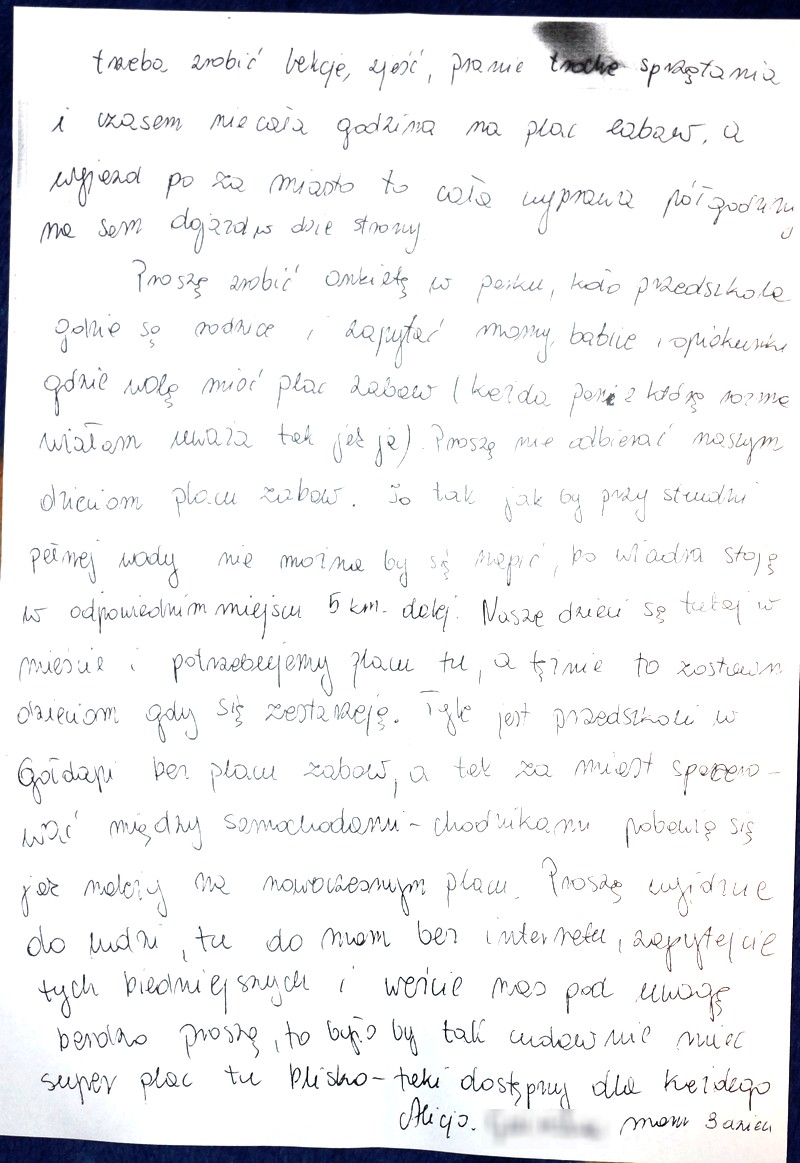 trzeba zrobić lekcje, zjeść, pranie trochę sprzątania
i czasem nie cała godzina na plac zabaw, a
wyjazd po za miasto to cała wyprawa pół godziny
na sam dojazd w dzie strony
Proszę zrobić ankietę w parku, koło przedszkola
gdzie są rodzice i zapytać mamy, babcie i opiekunki
gdzie wolą mieć plac zabaw (każda pani z którą rozma
wiałam uważa tak jak ja). Proszę nie odbierać naszym
dzieciom placu zabaw. To tak jak by przy studni
pełnej wody nie można by się napić, bo wiadra stoją
w odpowiednim miejscu 5 km. dalej. Nasze dzieci są tutaj w
mieście i potrzebujemy placu tu, a tężnie to zostawm
dzieciom gdy się zestarzeją. Tyle jest przedszkoli w
Gołdapi bez placu zabaw, a tak za miast spacero-
wać między samochodami - chodnikami pobawią się
jak należy na nowoczesnym placu. Proszę wyjdzcie
do ludzi, tu do mam bez internetu, zapytajcie
tych biedniejsznych i weźcie nas pod uwagę
bardzo proszę, to było by tak cudownie mieć
super plac tu blisko - taki dostępny dla każdego
Alicja. mama 3 dzieci